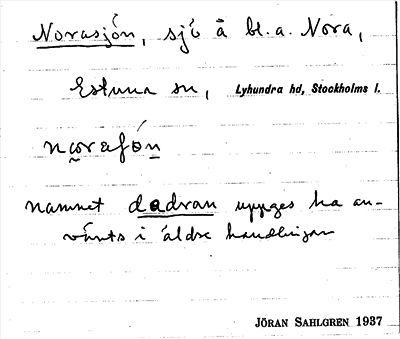 Norasjön, sjö å bl.a. Nora,
Estuna sn, Lyhundra hd, Stockholms l.
norafón
namnet dadran uppges ha an-
vänts i äldre handlingar
JÖRAN SAHLGREN 1937